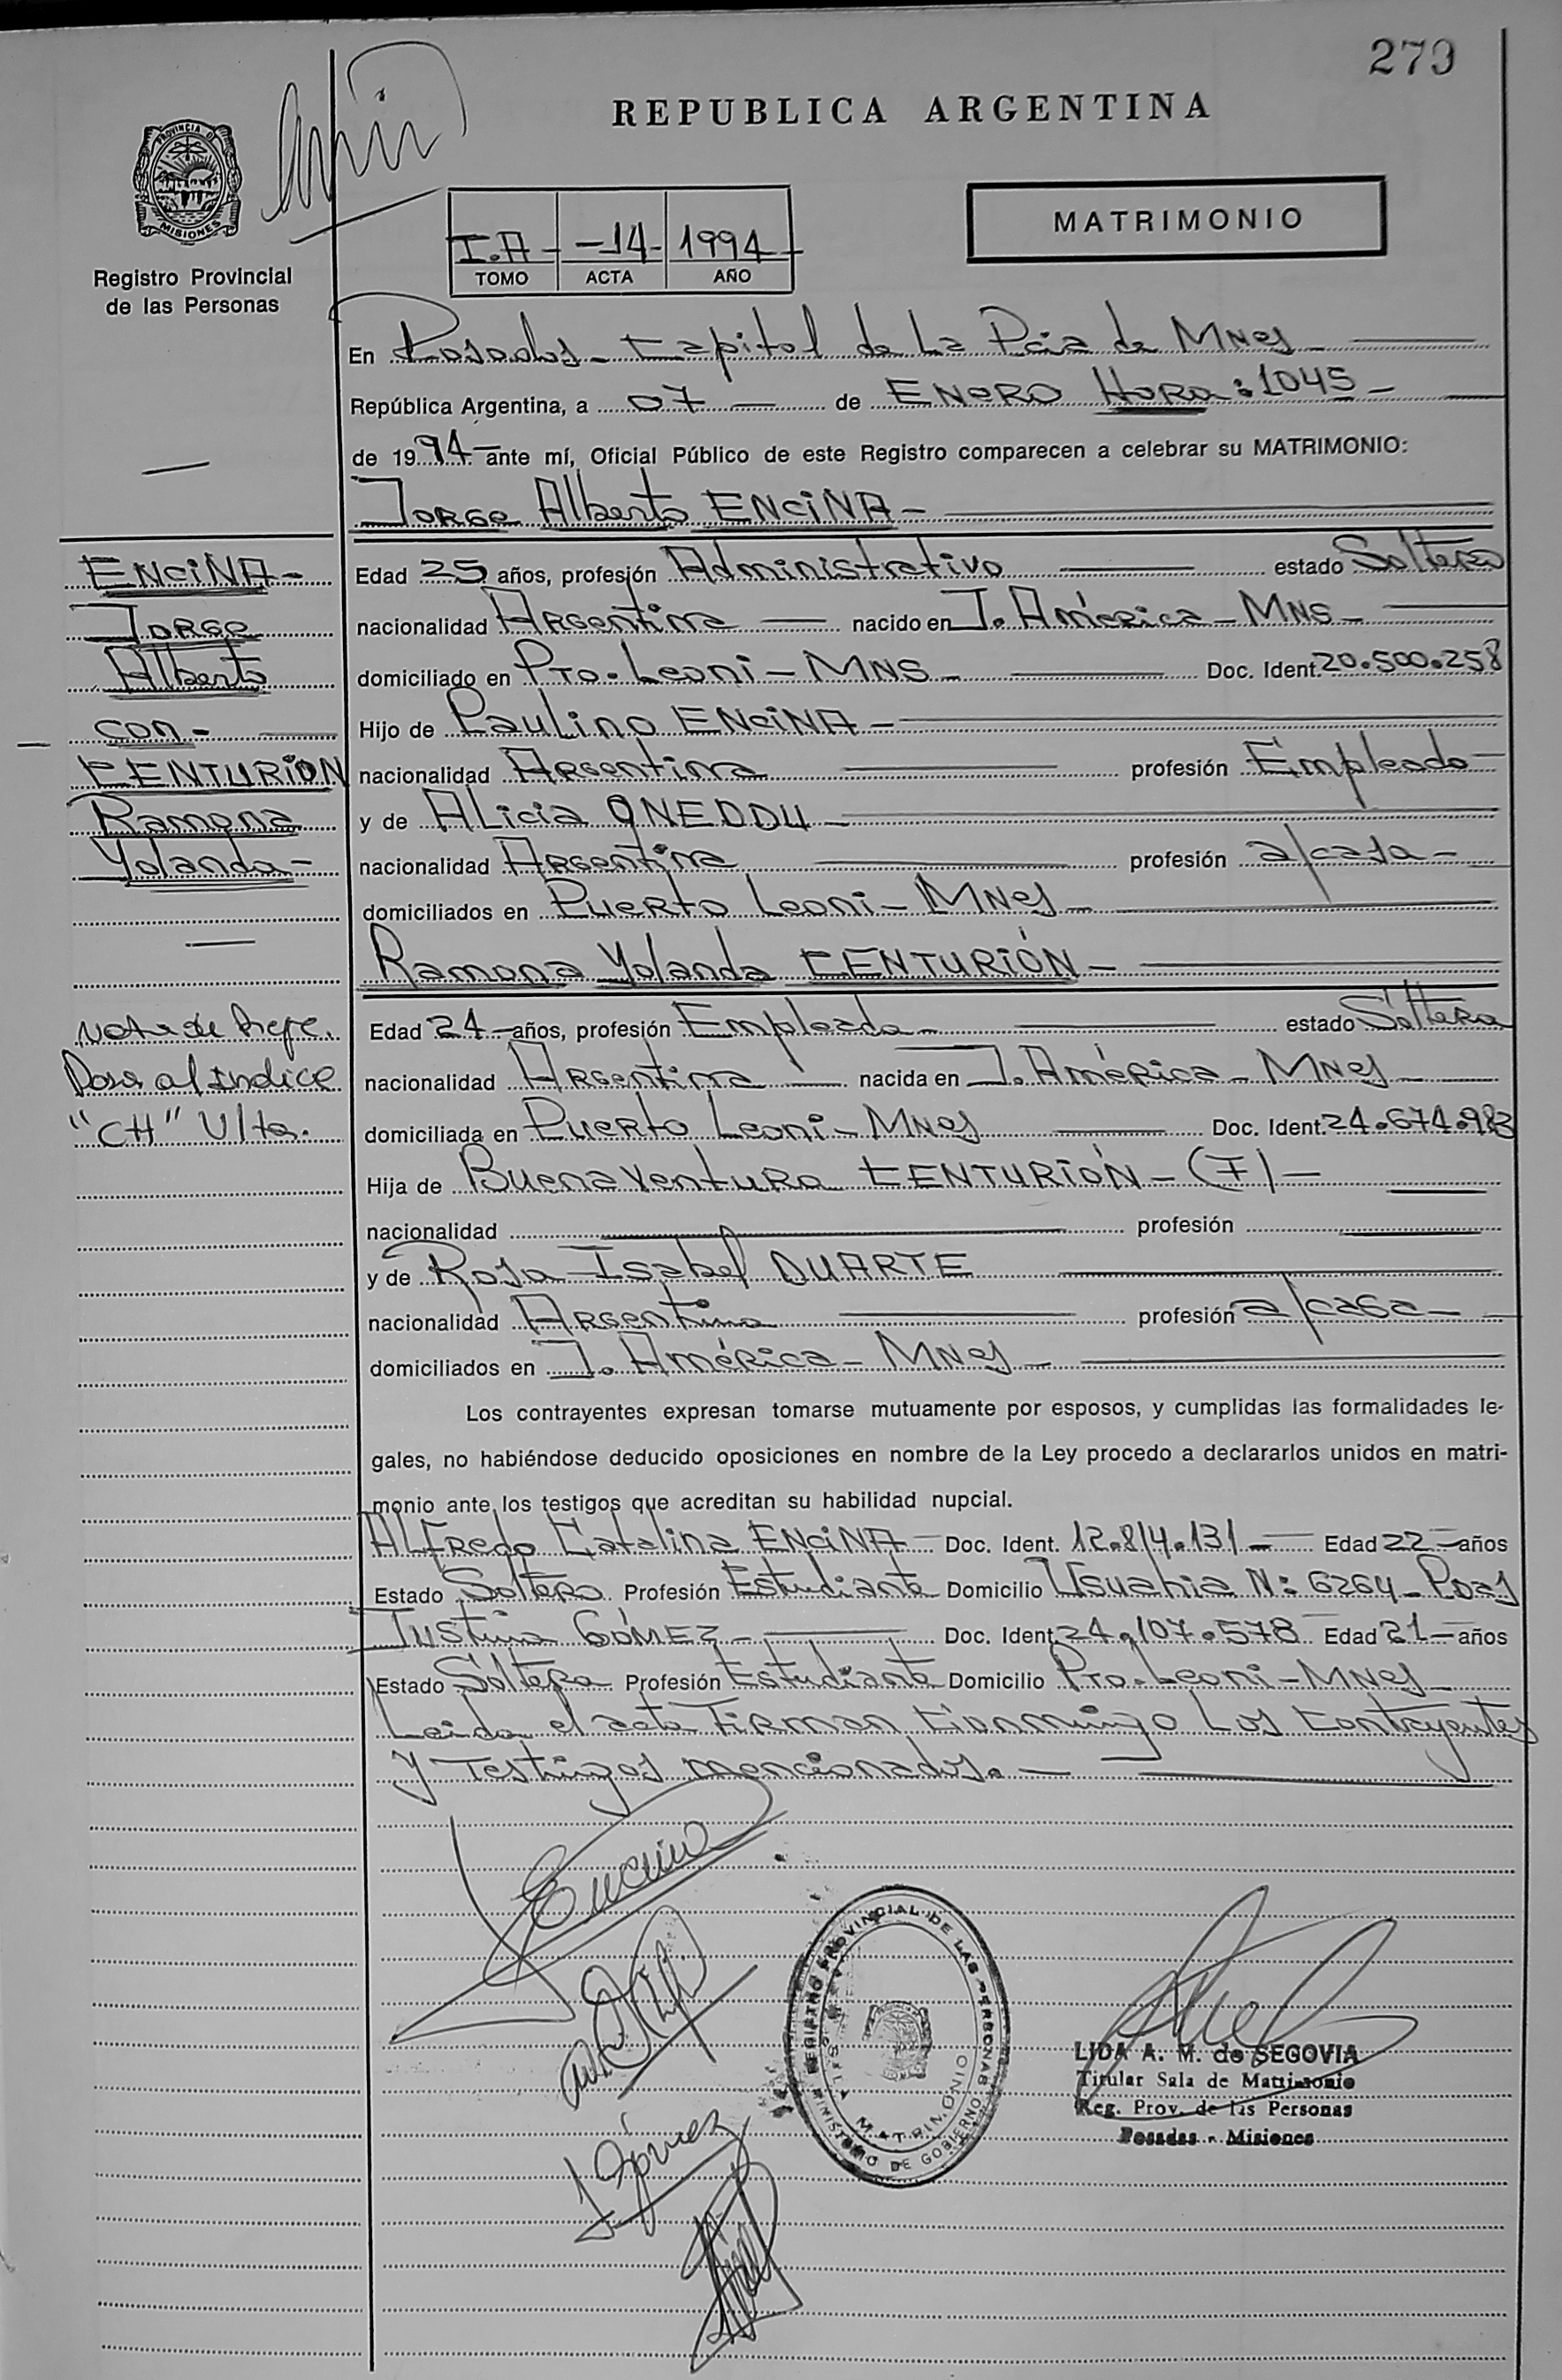 279
REPUBLICA ARGENTINA
PROVINCIA DE
MISIONES
Registro Provincial
de las Personas
I.A - -14- 1994
TOMO ACTA AÑO
MATRIMONIO
En Posadas - Capital de La Pcia de MNes -
República Argentina, a 07 - de ENERO HORA: 1045 -
de 1994 - ante mí, Oficial Público de este Registro comparecen a celebrar su MATRIMONIO:
Jorge Alberto ENCINA -
ENCINA -
Jorge
Alberto
con -
CENTURION
Ramona
Yolanda -
Edad 25 años, profesión Administrativo estado Soltero
nacionalidad Argentina nacido en J. América - MNS -
domiciliado en Pto. Leoni - MNS - Doc. Ident. 20.500.258
Hijo de Paulino ENCINA -
nacionalidad Argentina profesión Empleado -
y de Alicia ONEDDU -
nacionalidad Argentina profesión a/casa -
domiciliados en Puerto Leoni - MNes -
Ramona Yolanda CENTURIÓN -
Nota de
al Indice
"CH" Ulta.
Edad 24 - años, profesión Empleada - estado Soltera
nacionalidad Argentina nacida en J. América - MNes -
domiciliada en Puerto Leoni - MNes Doc. Ident. 24.674.983
Hija de Buenaventura CENTURIÓN - (F) -
nacionalidad profesión
y de Rosa Isabel DUARTE
nacionalidad Argentina profesión a/casa -
domiciliados en J. América - MNes -
Los contrayentes expresan tomarse mutuamente por esposos, y cumplidas las formalidades le-
gales, no habiéndose deducido oposiciones en nombre de la Ley procedo a declararlos unidos en matri-
monio ante los testigos que acreditan su habilidad nupcial.
Alfredo Catalina ENCINA - Doc. Ident. 12.814.131 - Edad 22 - años
Estado Soltero Profesión Estudiante Domicilio Usuahia N: 6264 - Pdas
Justina GÓMEZ - Doc. Ident. 24.107.578 Edad 21 - años
Estado Soltera Profesión Estudiante Domicilio Pto. Leoni - MNes -
Leida el acta Firman Conmigo Los Contrayentes
y Testigos mencionados. -
Encina
J Gómez
REGISTRO PROVINCIAL DE LAS PERSONAS
MATRIMONIO
MINISTERIO DE GOBIERNO
LIDA A. M. de SEGOVIA
Titular Sala de Matrimonio
Reg. Prov. de las Personas
Posadas - Misiones